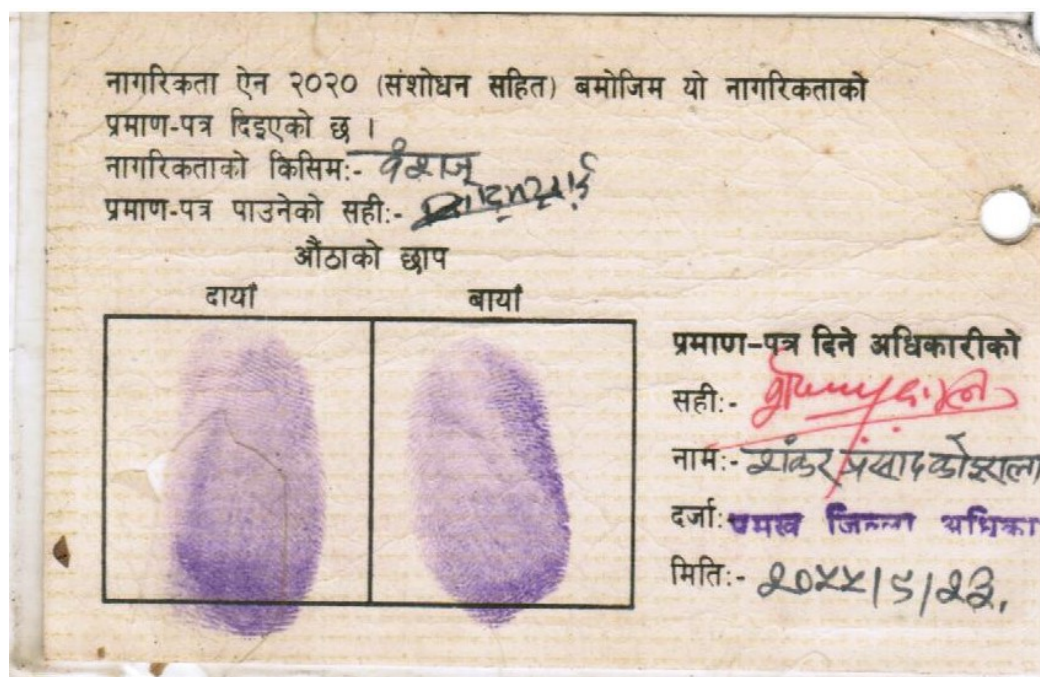 नागरिकता ऐन २०२० (संशोधन सहित) बमोजिम यो नागरिकताको
प्रमाण-पत्र दिइएको छ ।
नागरिकताको किसिम:- वंशज
प्रमाण-पत्र पाउनेको सही:-
औंठाको छाप
दायां बायां
प्रमाण-पत्र दिने अधिकारीको
सही:-
नाम:- शंकर प्रसाद कोइराला
दर्जा: प्रमुख जिल्ला अधिका
मिति:-